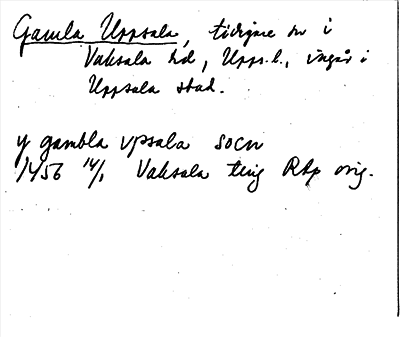 Gamla Uppsala, tidigare sn i
Vaksala hd, Upps.l., ingår i
Uppsala stad.
y gambla vpsala socn
1456 14/1 Vaksala ting RAp orig.